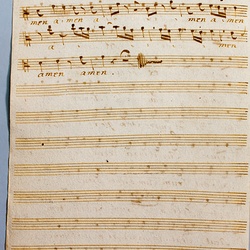 men a men a men a men
a men
amen amen.